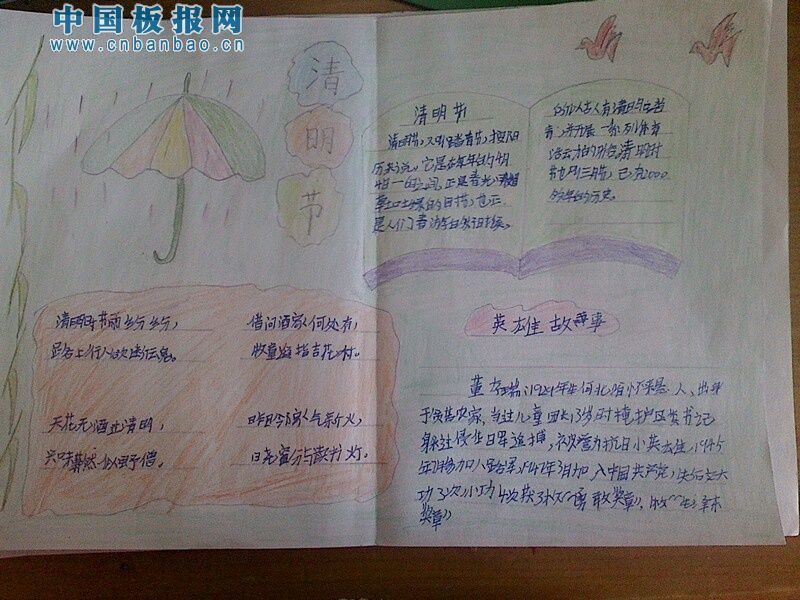 中国板报网
www.cnbanbao.cn
清
明
节
清明节
清明节,又叫踏青节,按阳
历来说,它是在每年的4月
4日—6日之间,正是春光明媚
草木吐绿的日
是人们春游
所以古人有清明
青,并开展一系列体育
活动的
清明
节
的历史。
清明时节雨纷纷,
借问酒家何处有,
路上行人欲断魂。
牧童遥指杏花村。
无花无酒过清明,
昨日邻家乞新火,
兴味萧然似野僧。
日尧窗分与读书灯。
英雄故事
董存瑞,1929年生河北省怀来县人,出身
于贫苦农家,当过儿童团长13岁时掩护区委书记
躲过侵华日军追捕,被誉为抗日小英雄,1945
年
加八路军,1947年3月加入中国共产党,
大
功3次,小功4次获3枚“勇敢奖章”,
奖章”